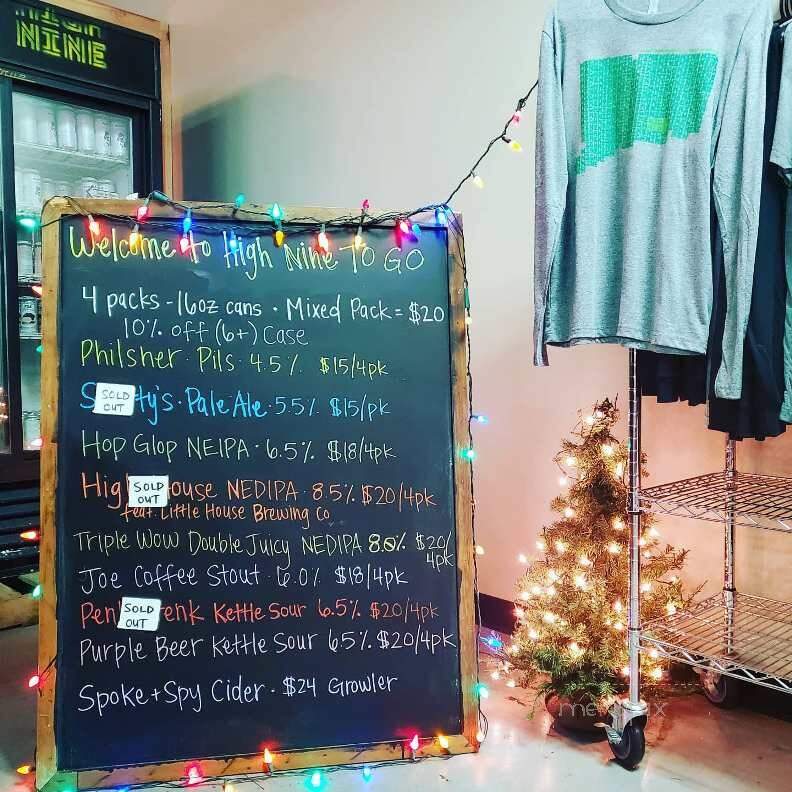 NINE
Welcome to High Nine TO GO
4 packs - 16oz cans • Mixed Pack = $20
10% off (6+) Case
Philsner • Pils • 4.5% $15/4pk
SOLD OUT
Pale Ale • 5.5% $15/pk
Hop Glop NEIPA • 6.5% $18/4pk
SOLD OUT
NEDIPA • 8.5% $20/4pk
feat. Little House Brewing Co
Triple Wow Double Juicy NEDIPA 8.0% $20/
4pk
Joe Coffee Stout • 6.0% $18/4pk
SOLD OUT
Kettle Sour 6.5% $20/4pk
Purple Beer Kettle Sour 6.5% $20/4pk
Spoke + Spy Cider • $24 Growler